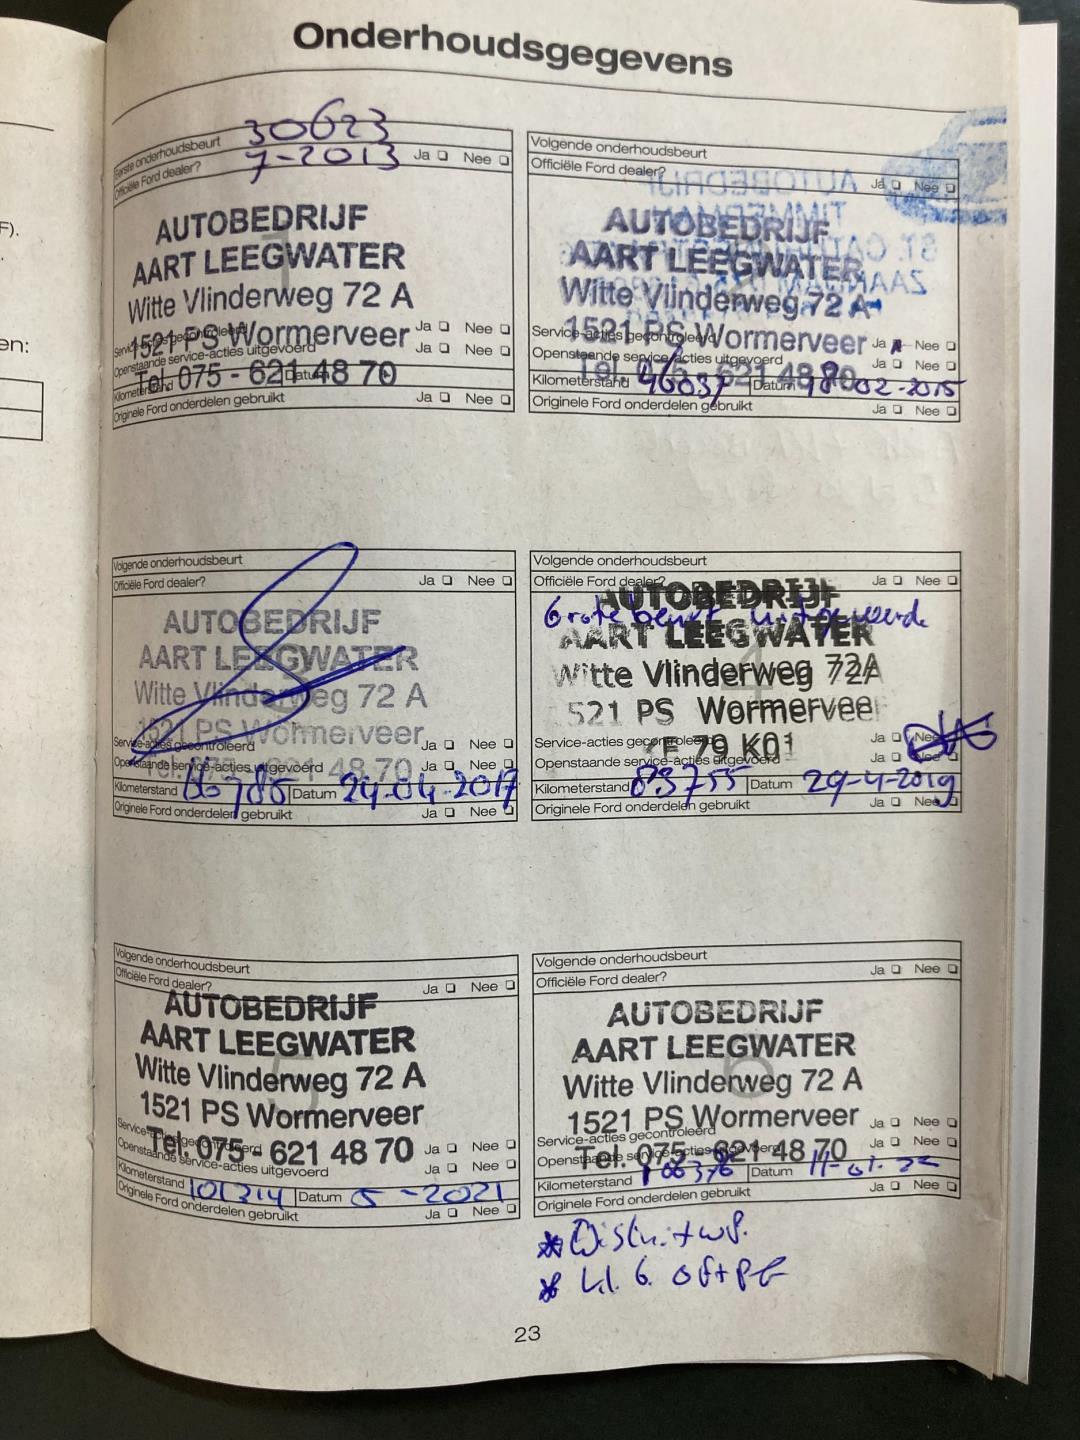 Onderhoudsgegevens
30623
Eerste onderhoudsbeurt
7-2013
Officiële Ford dealer? Ja Nee
AUTOBEDRIJF
AART LEEGWATER
Witte Vlinderweg 72 A
1521 PS Wormerveer
Tel. 075 - 621 48 70
Service-acties gecontroleerd Ja Nee
Openstaande service-acties uitgevoerd Ja Nee
Kilometerstand Datum
Originele Ford onderdelen gebruikt Ja Nee
Volgende onderhoudsbeurt
Officiële Ford dealer? Ja Nee
AUTOBEDRIJF
AUTOBEDRIJF
AART LEEGWATER
Witte Vlinderweg 72 A
1521 PS Wormerveer
Tel. 075 - 621 48 70
Service-acties gecontroleerd Ja Nee
Openstaande service-acties uitgevoerd Ja Nee
Kilometerstand 46037 Datum 18-02-2015
Originele Ford onderdelen gebruikt Ja Nee
Volgende onderhoudsbeurt
Officiële Ford dealer? Ja Nee
AUTOBEDRIJF
AART LEEGWATER
Witte Vlinderweg 72 A
1521 PS Wormerveer
Tel. 075 - 621 48 70
Service-acties gecontroleerd Ja Nee
Openstaande service-acties uitgevoerd Ja Nee
Kilometerstand 66785 Datum 24-04-2017
Originele Ford onderdelen gebruikt Ja Nee
Volgende onderhoudsbeurt
Officiële Ford dealer? Ja Nee
AUTOBEDRIJF
Grote beurt uitgevoerd.
AART LEEGWATER
Witte Vlinderweg 72A
1521 PS Wormerveer
KE 79 K01
Service-acties gecontroleerd Ja Nee
Openstaande service-acties uitgevoerd Ja Nee
Kilometerstand 83755 Datum 29-4-2019
Originele Ford onderdelen gebruikt Ja Nee
Volgende onderhoudsbeurt
Officiële Ford dealer? Ja Nee
AUTOBEDRIJF
AART LEEGWATER
Witte Vlinderweg 72 A
1521 PS Wormerveer
Tel. 075 - 621 48 70
5
Service-acties gecontroleerd Ja Nee
Openstaande service-acties uitgevoerd Ja Nee
Kilometerstand 101214 Datum 5 -2021
Originele Ford onderdelen gebruikt Ja Nee
Volgende onderhoudsbeurt
Officiële Ford dealer? Ja Nee
AUTOBEDRIJF
AART LEEGWATER
Witte Vlinderweg 72 A
1521 PS Wormerveer
Tel. 075 - 621 48 70
6
Service-acties gecontroleerd Ja Nee
Openstaande service-acties uitgevoerd Ja Nee
Kilometerstand 106376 Datum 11-01-22
Originele Ford onderdelen gebruikt Ja Nee
23